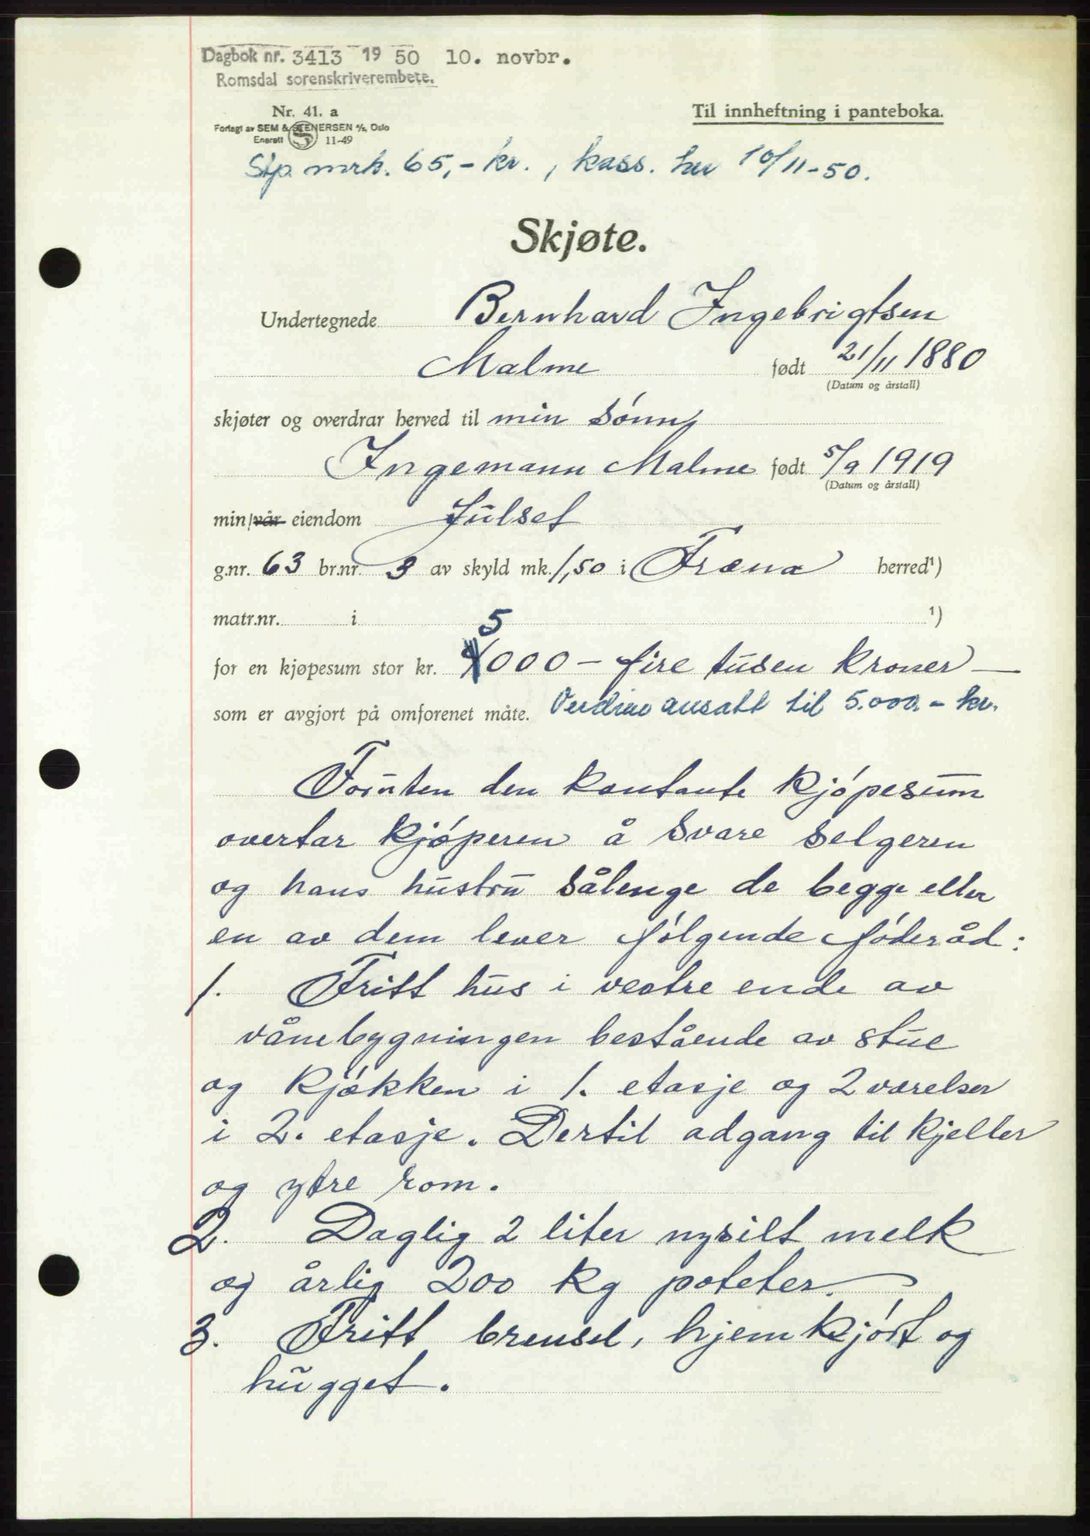 Dagbok nr. 3413 19 50 10. novbr.
Romsdal sorenskriverembete.
Nr. 41. a
Forlagt av SEM & STENERSEN A/S, Oslo
Enerett S 11-49
Til innheftning i panteboka.
Stp. mrk. 65,- kr., kass. her 10/11-50.
Skjøte.
Undertegnede Bernhard Ingebrigtsen
Malme født 21/11 1880
(Datum og årstall)
skjøter og overdrar herved til min sønn,
Ingemann Malme født 5/9 1919
(Datum og årstall)
min/vår eiendom Julset
g.nr. 63 br.nr. 3 av skyld mk. 1,50 i Fræna herred¹)
matr.nr. i ¹)
5
for en kjøpesum stor kr. 4000 – fire tusen kroner –
som er avgjort på omforenet måte. Verdien ansatt til 5.000.- kr.
Foruten den kontante kjøpesum
overtar kjøperen å svare selgeren
og hans hustru sålenge de begge eller
en av dem lever følgende føderåd:
1. Fritt hus i vestre ende av
vånebygningen bestående av stue
og kjøkken i 1. etasje og 2 værelser
i 2. etasje. Dertil adgang til kjeller
og ytre rom.
2. Daglig 2 liter nysilt melk
og årlig 200 kg poteter.
3. Fritt brensel, hjemkjørt og
hugget.